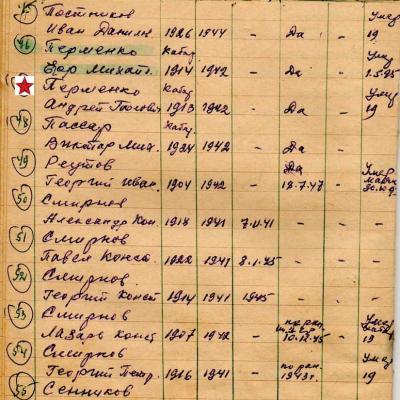 45 Постников Умер
Иван Данил 1926 1944 - Да - 19
46 Перменко Умер
Егор Михайл. 1914 1942 - Да 1.5.95
Перменко Умер
Андрей 1913 1942 - Да - 19
48 Пассар
Виктор Мих. 1924 1942 - Да -
49 Реутов Да Умер
Георгий Иван. 1904 1942 - 18.7.47 -
50 Смирнов
Александр Кон. 1918 1941 7.11.41
51 Смирнов
Павел Конст. 1922 1941 8.1.45 - -
52 Смирнов
Георгий Конст 1914 1941 1945 - - -
53 Смирнов
Лазарь Конст 1907 1942 - 10.12.45 - 19
54 Смирнов по ран. Умер
Георгий Петр. 1916 1941 - 1943г. 19
55 Сенников